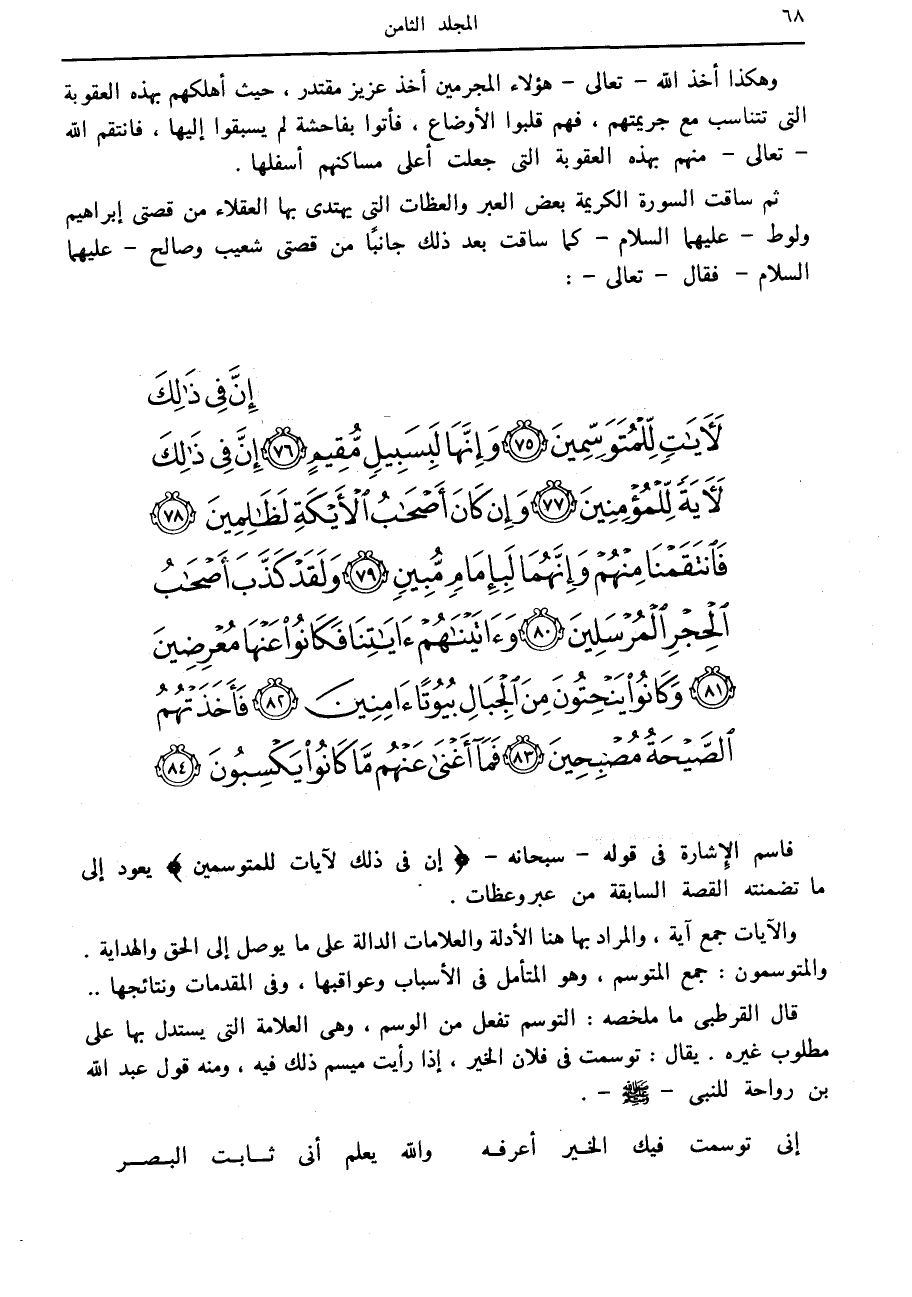 ٦٨
المجلد الثامن
وهكذا أخذ الله – تعالى – هؤلاء المجرمين أخذ عزيز مقتدر ، حيث أهلكهم بهذه العقوبة
التى تتناسب مع جريمتهم ، فهم قلبوا الأوضاع ، فأتوا بفاحشة لم يسبقوا إليها ، فانتقم الله
– تعالى – منهم بهذه العقوبة التى جعلت أعلى مساكنهم أسفلها .
ثم ساقت السورة الكريمة بعض العبر والعظات التى يهتدى بها العقلاء من قصتى إبراهيم
ولوط – عليهما السلام – كما ساقت بعد ذلك جانبًا من قصتى شعيب وصالح – عليهما
السلام – فقال – تعالى – :
إِنَّ فِى ذَٰلِكَ
لَأَيَٰتٍ لِّلْمُتَوَسِّمِينَ ﴿٧٥﴾ وَإِنَّهَا لَبِسَبِيلٍ مُّقِيمٍ ﴿٧٦﴾ إِنَّ فِى ذَٰلِكَ
لَأَيَةً لِّلْمُؤْمِنِينَ ﴿٧٧﴾ وَإِن كَانَ أَصْحَٰبُ ٱلْأَيْكَةِ لَظَٰلِمِينَ ﴿٧٨﴾
فَٱنتَقَمْنَا مِنْهُمْ وَإِنَّهُمَا لَبِإِمَامٍ مُّبِينٍ ﴿٧٩﴾ وَلَقَدْ كَذَّبَ أَصْحَٰبُ
ٱلْحِجْرِ ٱلْمُرْسَلِينَ ﴿٨٠﴾ وَءَاتَيْنَٰهُمْ ءَايَٰتِنَا فَكَانُوا۟ عَنْهَا مُعْرِضِينَ
﴿٨١﴾ وَكَانُوا۟ يَنْحِتُونَ مِنَ ٱلْجِبَالِ بُيُوتًا ءَامِنِينَ ﴿٨٢﴾ فَأَخَذَتْهُمُ
ٱلصَّيْحَةُ مُصْبِحِينَ ﴿٨٣﴾ فَمَآ أَغْنَىٰ عَنْهُم مَّا كَانُوا۟ يَكْسِبُونَ ﴿٨٤﴾
فاسم الإشارة فى قوله – سبحانه – ﴿ إن فى ذلك لآيات للمتوسمين ﴾ يعود إلى
ما تضمنته القصة السابقة من عبر وعظات .
والآيات جمع آية ، والمراد بها هنا الأدلة والعلامات الدالة على ما يوصل إلى الحق والهداية .
والمتوسمون : جمع المتوسم ، وهو المتأمل فى الأسباب وعواقبها ، وفى المقدمات ونتائجها ..
قال القرطبى ما ملخصه : التوسم تفعل من الوسم ، وهى العلامة التى يستدل بها على
مطلوب غيره . يقال : توسمت فى فلان الخير ، إذا رأيت ميسم ذلك فيه ، ومنه قول عبد الله
بن رواحة للنبى – ﷺ – .
إنى توسمت فيك الخير أعرفه والله يعلم أنى ثابت البصر